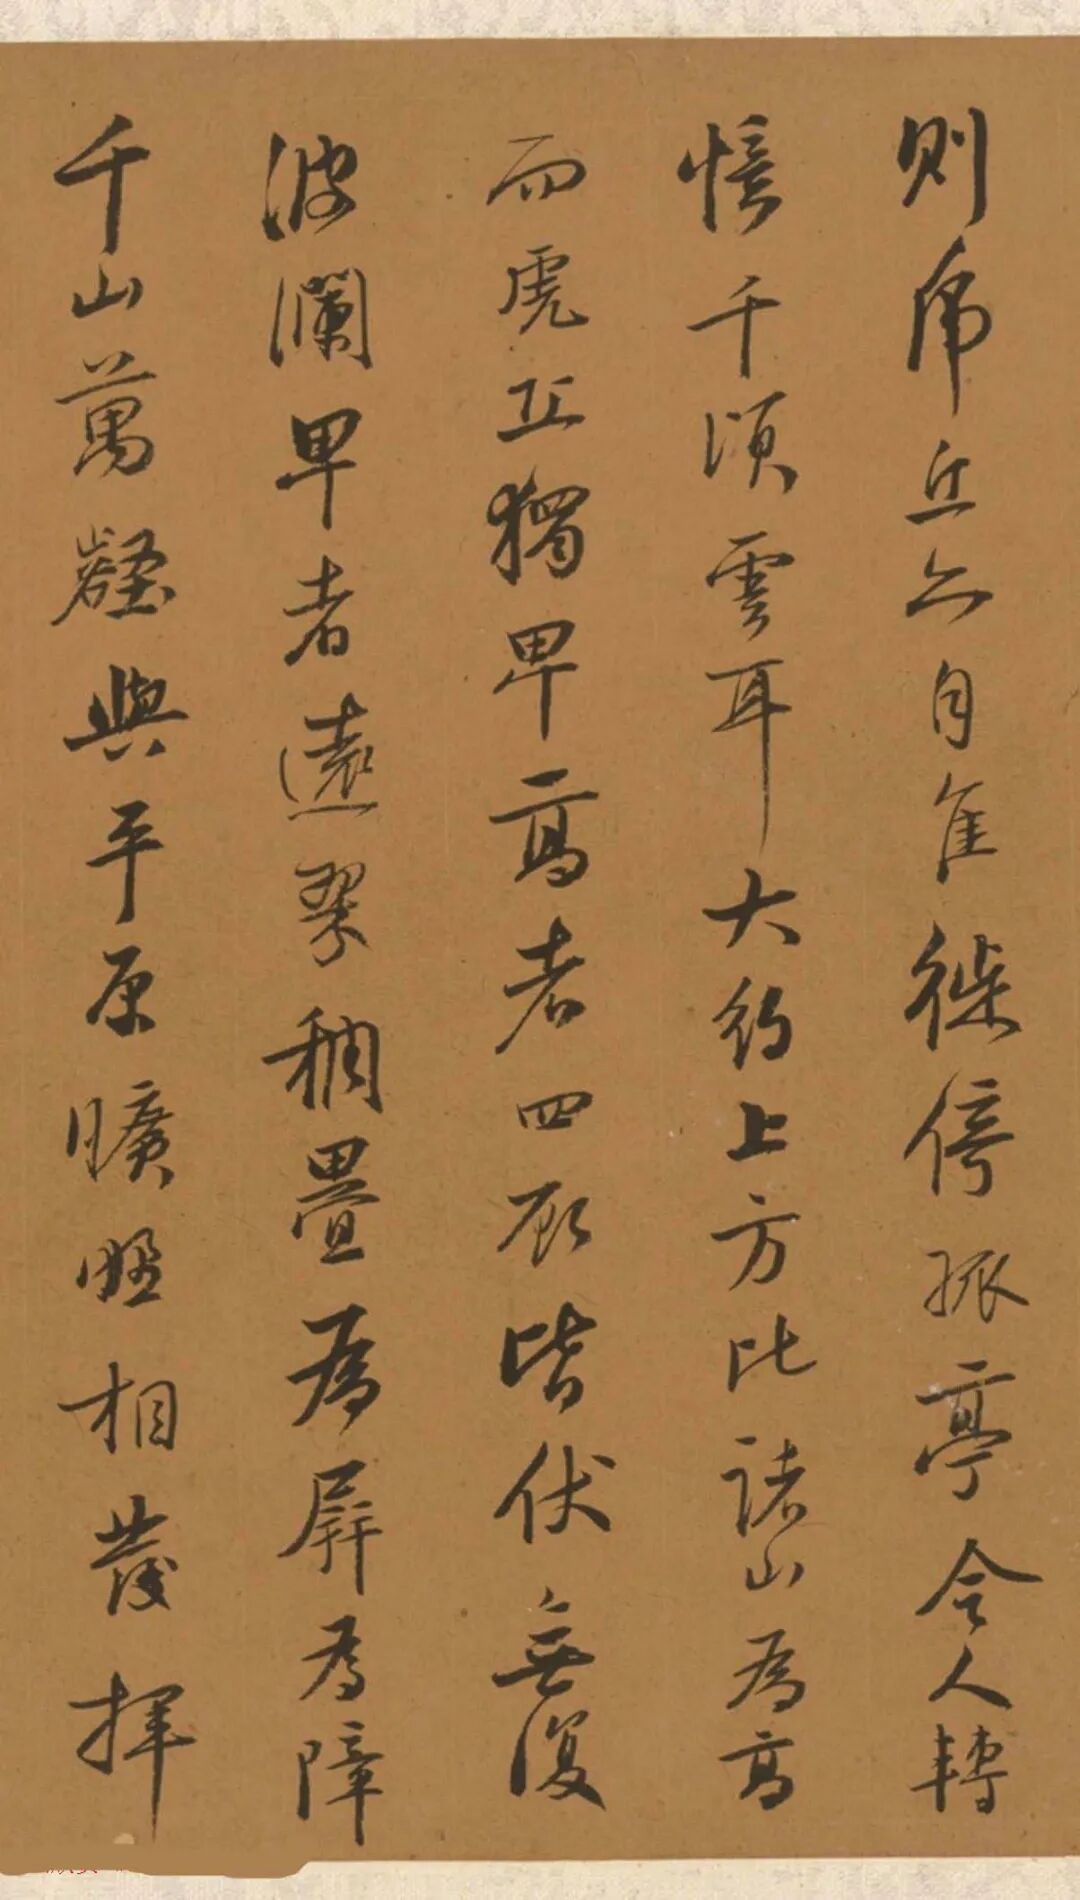 則虎丘六月隹徙倚孤亭令人轉
憶千頃雲耳大約上方比諸山為高
而虎丘獨卑高者四顧皆伏無復
波瀾卑者遠翠稠疊為屏為障
千山萬壑與平原曠野相發揮